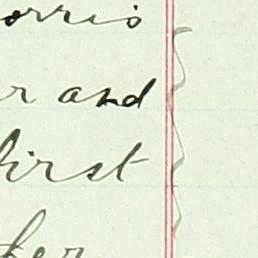 orris
r and
first
her